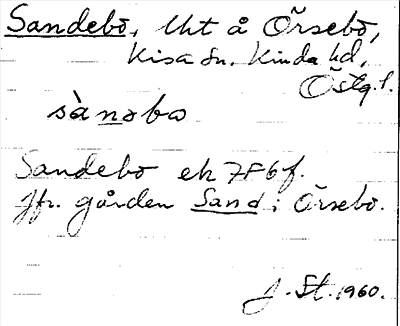 Sandebo, lht å Örsebo,
Kisa sn, Kinda hd,
Östg.l.
sànsbo
Sandebo ek 7F6f.
Jfr. gården Sand i Örsebo.
J. St. 1960.